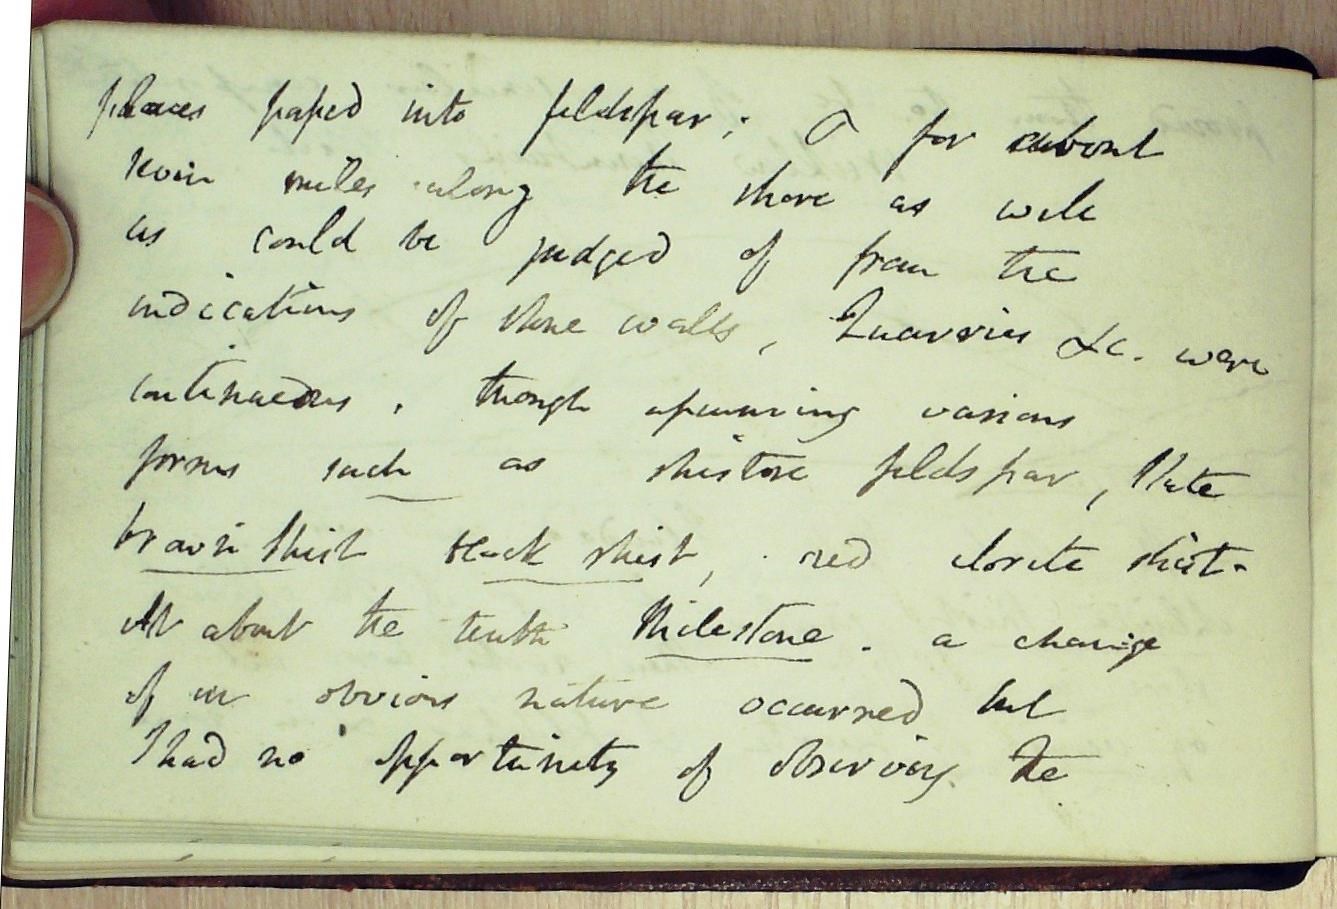 places passed into feldspar; & for about
seven miles along the shore as well
as could be judged of from the
indications of stone walls, Quarries &c. were
continuous, though assuming various
forms such as shistose feldspar, Slate
brown Shist black shist, red clorite shist.
At about the tenth Milestone. a change
of an obvious nature occurred but
I had no opportunity of observing the